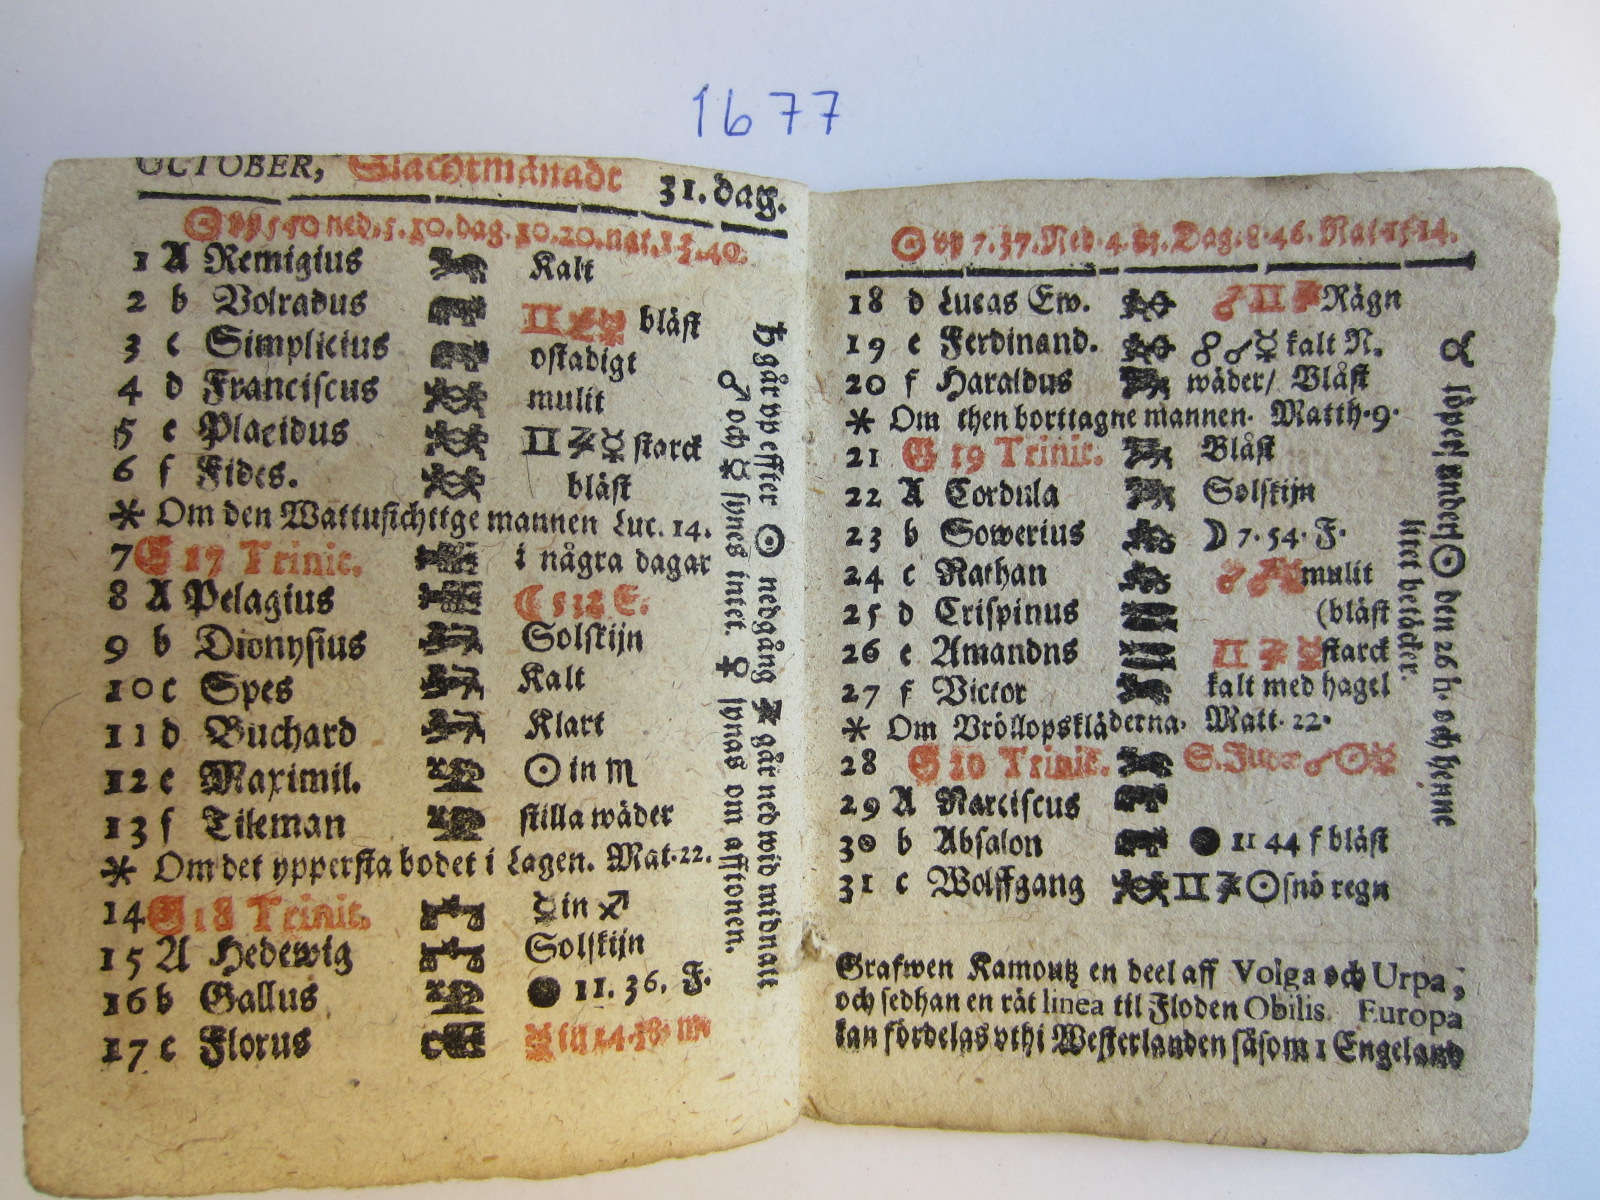 1677
OCTOBER, Slachtmånadt 31. dag.
☉ vp 5.50 ned. 5. 10. dag. 10. 20. nat. 13. 40.
1 A Remigius Kalt
2 b Volradus II ☿ blåst
3 c Simplicius ostadigt
4 d Franciscus mulit
5 e Placidus II ☿ starck
6 f Fides. blåst
* Om den Wattusichtige mannen Luc. 14.
7 G 17 Trinit. i några dagar
8 A Pelagius ☾ 5 12 E.
9 b Dionysius Solskijn
10 c Spes Kalt
11 d Buchard Klart
12 e Maximil. ☉ in ♏
13 f Tileman stilla wäder
* Om det yppersta bodet i Lagen. Mat. 22.
14 G 18 Trinit. ☿ in ♐
15 A Hedewig Solskijn
16 b Gallus ● 11. 36. F.
17 c Florus
♄ går vp effter ☉ nedgång ♃ går ned wid midnatt
♂ och ☿ synes intet. ♀ synas om afftonen.
☉ vp 7. 37. Ned. 4. Dag. 8. 46. Nat. 15 14.
18 d Lucas Ew. ♂ II Rägn
19 e Ferdinand. ☍ ☌ ☿ kalt N.
20 f Haraldus wäder/ Blåst
* Om then borttagne mannen. Matth. 9.
21 G 19 Trinit. Blåst
22 A Cordula Solskijn
23 b Sowerius ☽ 7. 54. F.
24 c Nathan mulit
25 d Crispinus (blåst
26 e Amandns II ♃ ☿ starck
27 f Victor kalt med hagel
* Om Bröllopskläderna. Matt. 22.
28 G 20 Trinit. S. Judæ ☌ ☉ ☿
29 A Narciscus
30 b Absalon ● 11 44 f blåst
31 c Wolffgang II ♃ ☉ snö regn
löper vnder ☉ den 26 h. och henne
litet betäcker.
Grafwen Kamoutz en deel aff Volga och Urpa,
och sedhan en rät linea til Floden Obilis. Europa
kan fördelas vthi Westerlanden såsom i Engeland